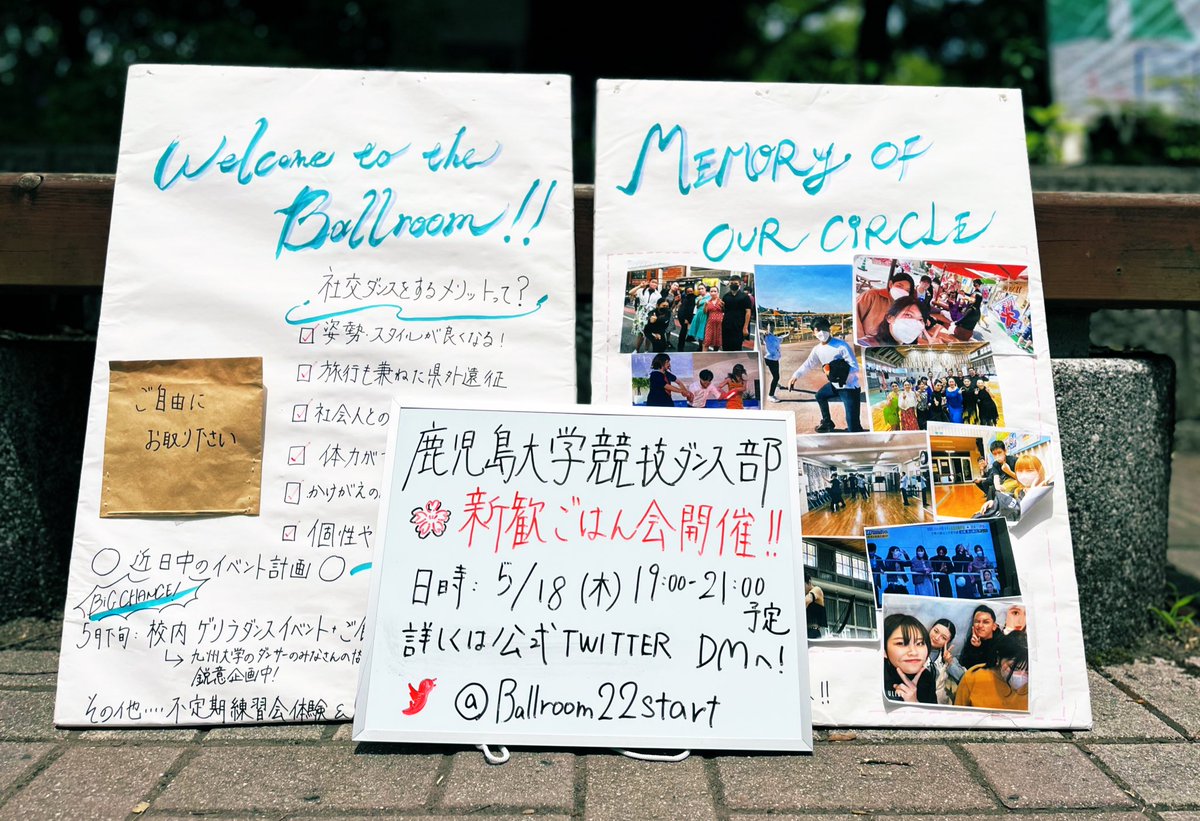 Welcome to the
Ballroom!!
社交ダンスをするメリットって?
姿勢・スタイルが良くなる!
旅行も兼ねた県外遠征
社会人との
体力が
かけがえの
個性や
ご自由に
お取り下さい
○近日中のイベント計画○
BIG CHANCE!
5月下旬:校内ゲリラダンスイベント・ご
↳九州大学のダンサーのみなさんの
鋭意企画中!
その他....不定期練習会体験&
MEMORY OF
OUR CIRCLE
!!
鹿児島大学競技ダンス部
新歓ごはん会開催!!
日時:5/18(木)19:00-21:00
予定
詳しくは公式TWITTER DMへ!
@Ballroom22start